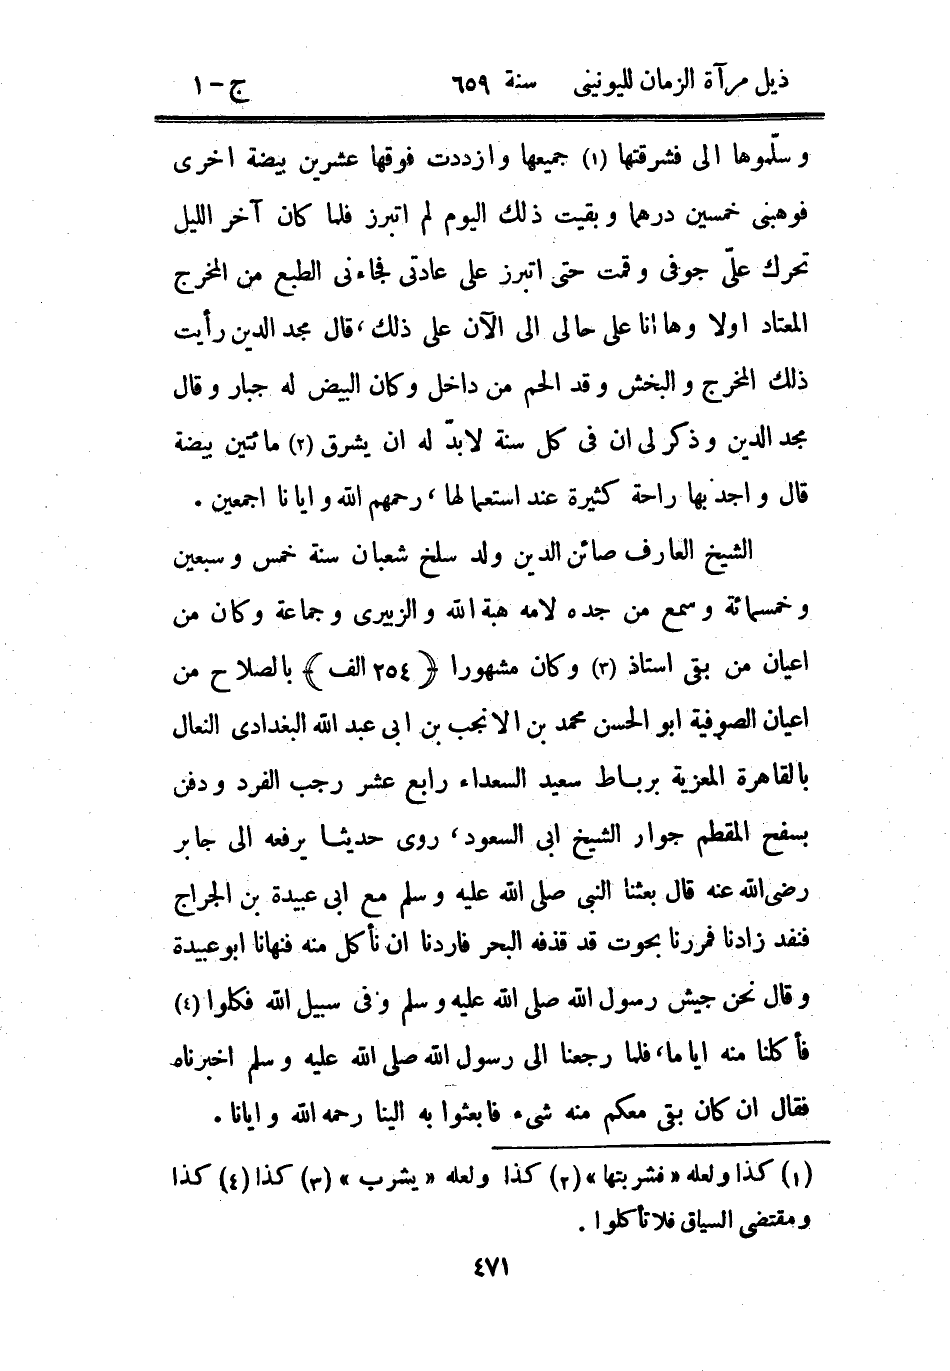 ذيل مرآة الزمان لليونينى سنة ٦٥٩ ج-١
وسلّموها الى فشرقتها (١) جميعها وازددت فوقها عشرين بيضة اخرى
فوهبنى خمسين درهما وبقيت ذلك اليوم لم اتبرز فلما كان آخر الليل
تحرك علىّ جوفى وقمت حتى اتبرز على عادتى فجاءنى الطبع من المخرج
المعتاد اولا وها انا على حالى الى الآن على ذلك، قال مجد الدين رأيت
ذلك المخرج والبخش وقد الحم من داخل وكان البيض له جبار وقال
مجد الدين وذكر لى ان فى كل سنة لابدّ له ان يشرق (٢) مائتين بيضة
قال واجد بها راحة كثيرة عند استعمالها، رحمهم الله وايانا اجمعين .
الشيخ العارف صائن الدين ولد سلخ شعبان سنة خمس وسبعين
وخمسمائة وسمع من جده لامه هبة الله والزبيرى وجماعة وكان من
اعيان من بقى استاذ (٣) وكان مشهورا ﴿٢٥٤ الف﴾ بالصلاح من
اعيان الصوفية ابو الحسن محمد بن الانجب بن ابى عبد الله البغدادى النعال
بالقاهرة المعزية برباط سعيد السعداء رابع عشر رجب الفرد ودفن
بسفح المقطم جوار الشيخ ابى السعود، روى حديثا يرفعه الى جابر
رضى الله عنه قال بعثنا النبى صلى الله عليه وسلم مع ابى عبيدة بن الجراح
فنفد زادنا فمررنا بحوت قد قذفه البحر فاردنا ان نأكل منه فنهانا ابو عبيدة
وقال نحن جيش رسول الله صلى الله عليه وسلم وفى سبيل الله فكلوا (٤)
فأكلنا منه اياما، فلما رجعنا الى رسول الله صلى الله عليه وسلم اخبرناه
فقال ان كان بقى معكم منه شىء فابعثوا به الينا رحمه الله وايانا .
(١) كذا ولعله «فشربتها» (٢) كذا ولعله «يشرب» (٣) كذا (٤) كذا
ومقتضى السياق فلا تأكلوا .
٤٧١